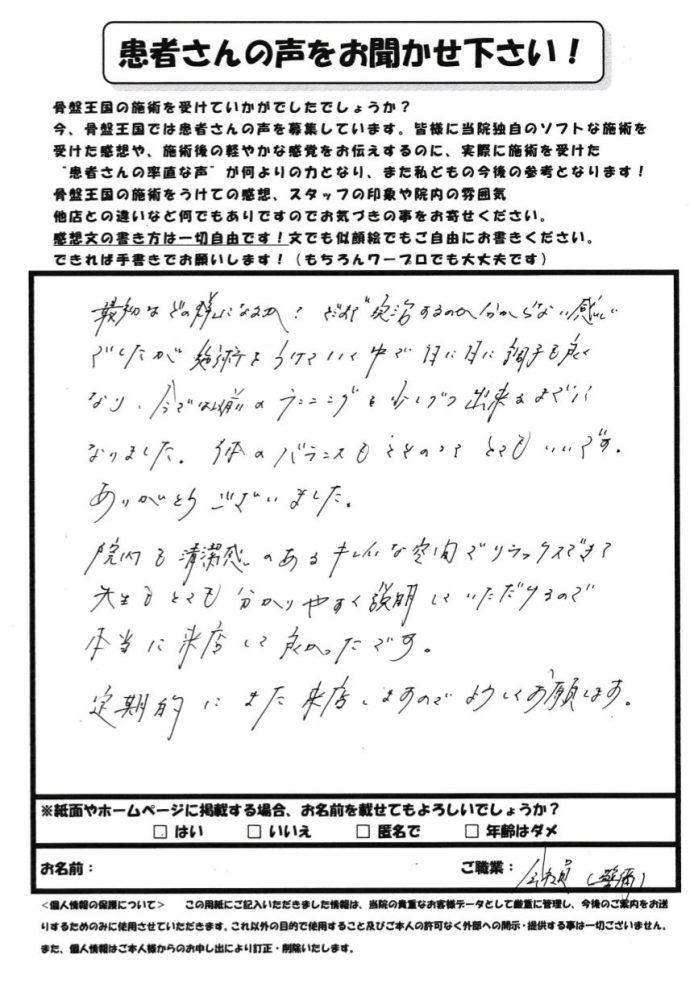 患者さんの声をお聞かせ下さい！
骨盤王国の施術を受けていかがでしたでしょうか？
今、骨盤王国では患者さんの声を募集しています。皆様に当院独自のソフトな施術を
受けた感想や、施術後の軽やかな感覚をお伝えするのに、実際に施術を受けた
"患者さんの率直な声"が何よりの力となり、また私どもの今後の参考となります！
骨盤王国の施術をうけての感想、スタッフの印象や院内の雰囲気
他店との違いなど何でもありですのでお気づきの事をお寄せください。
感想文の書き方は一切自由です！文でも似顔絵でもご自由にお書きください。
できれば手書きでお願いします！（もちろんワープロでも大丈夫です）
最初はどの様になるか？ 完治するのか分からない感じ
でしたが施術をうけていく中で日に日に調子も良く
なり、今では以前のランニングも少しづつ出来るまでに
なりました。体のバランスもととのってとてもいいです。
ありがとうございました。
院内も清潔感のあるキレイな空間でリラックスできて
先生もとても分かりやすく説明していただけるので
本当に来店して良かったです。
定期的にまた来店しますのでよろしくお願します。
※紙面やホームページに掲載する場合、お名前を載せてもよろしいでしょうか？
□ はい □ いいえ □ 匿名で □ 年齢はダメ
お名前： ご職業：会社員（腰痛）
＜個人情報の保護について＞ この用紙にご記入いただきました情報は、当院の貴重なお客様データとして厳重に管理し、今後のご案内をお送
りするためのみに使用させていただきます。これ以外の目的で使用すること及びご本人の許可なく外部への開示・提供する事は一切ございません。
また、個人情報はご本人様からのお申し出により訂正・削除いたします。